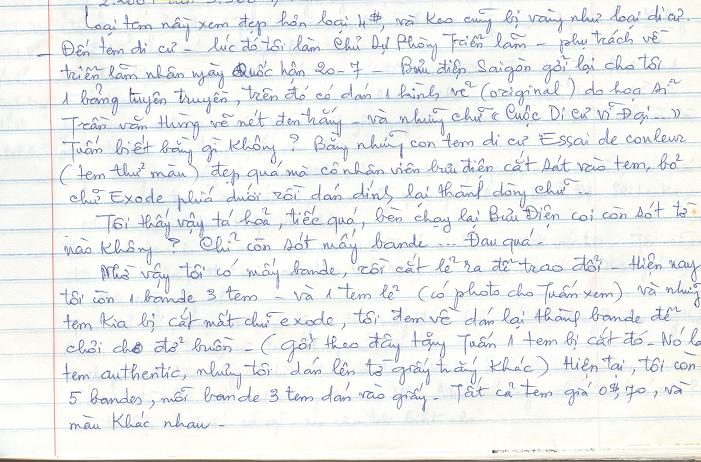 Loại tem này xem đẹp hơn loại 4$, và keo cũng bị vàng như loại di cư.
- Đến tem di cư - lúc đó tôi làm Chủ Sự Phòng Triển lãm - phụ trách về
triển lãm nhân ngày Quốc hận 20-7 - Bưu điện Saigon gởi lại cho tôi
1 bảng tuyên truyền, trên đó có dán 1 hình vẽ (original) do họa sĩ
Trần văn Thừng vẽ nét đen trắng - và những chữ "Cuộc Di cư vĩ Đại..."
Tuấn biết bằng gì không? Bằng những con tem di cư Essai de couleur
(tem thử màu) đẹp quá mà cô nhân viên bưu điện cắt sát vào tem, bỏ
chữ Exode phía dưới rồi dán dính lại thành dòng chữ...
Tôi thấy vậy tá hỏa, tiếc quá, bèn chạy lại Bưu Điện coi còn sót tờ
nào không? Chỉ còn sót mấy bande ... Đau quá.
Nhờ vậy tôi có mấy bande, rồi cắt lẻ ra để trao đổi - Hiện nay
tôi còn 1 bande 3 tem - và 1 tem lẻ (có photo cho Tuấn xem) và những
tem kia bị cắt mất chữ exode, tôi đem về dán lại thành bande để
chơi cho đỡ buồn - (gởi theo đây tặng Tuấn 1 tem bị cắt đó - Nó là
tem authentic, nhưng tôi dán lên tờ giấy trắng khác) Hiện tại, tôi còn
5 bandes, mỗi bande 3 tem dán vào giấy - Tất cả tem giá 0$,70, và
màu khác nhau -